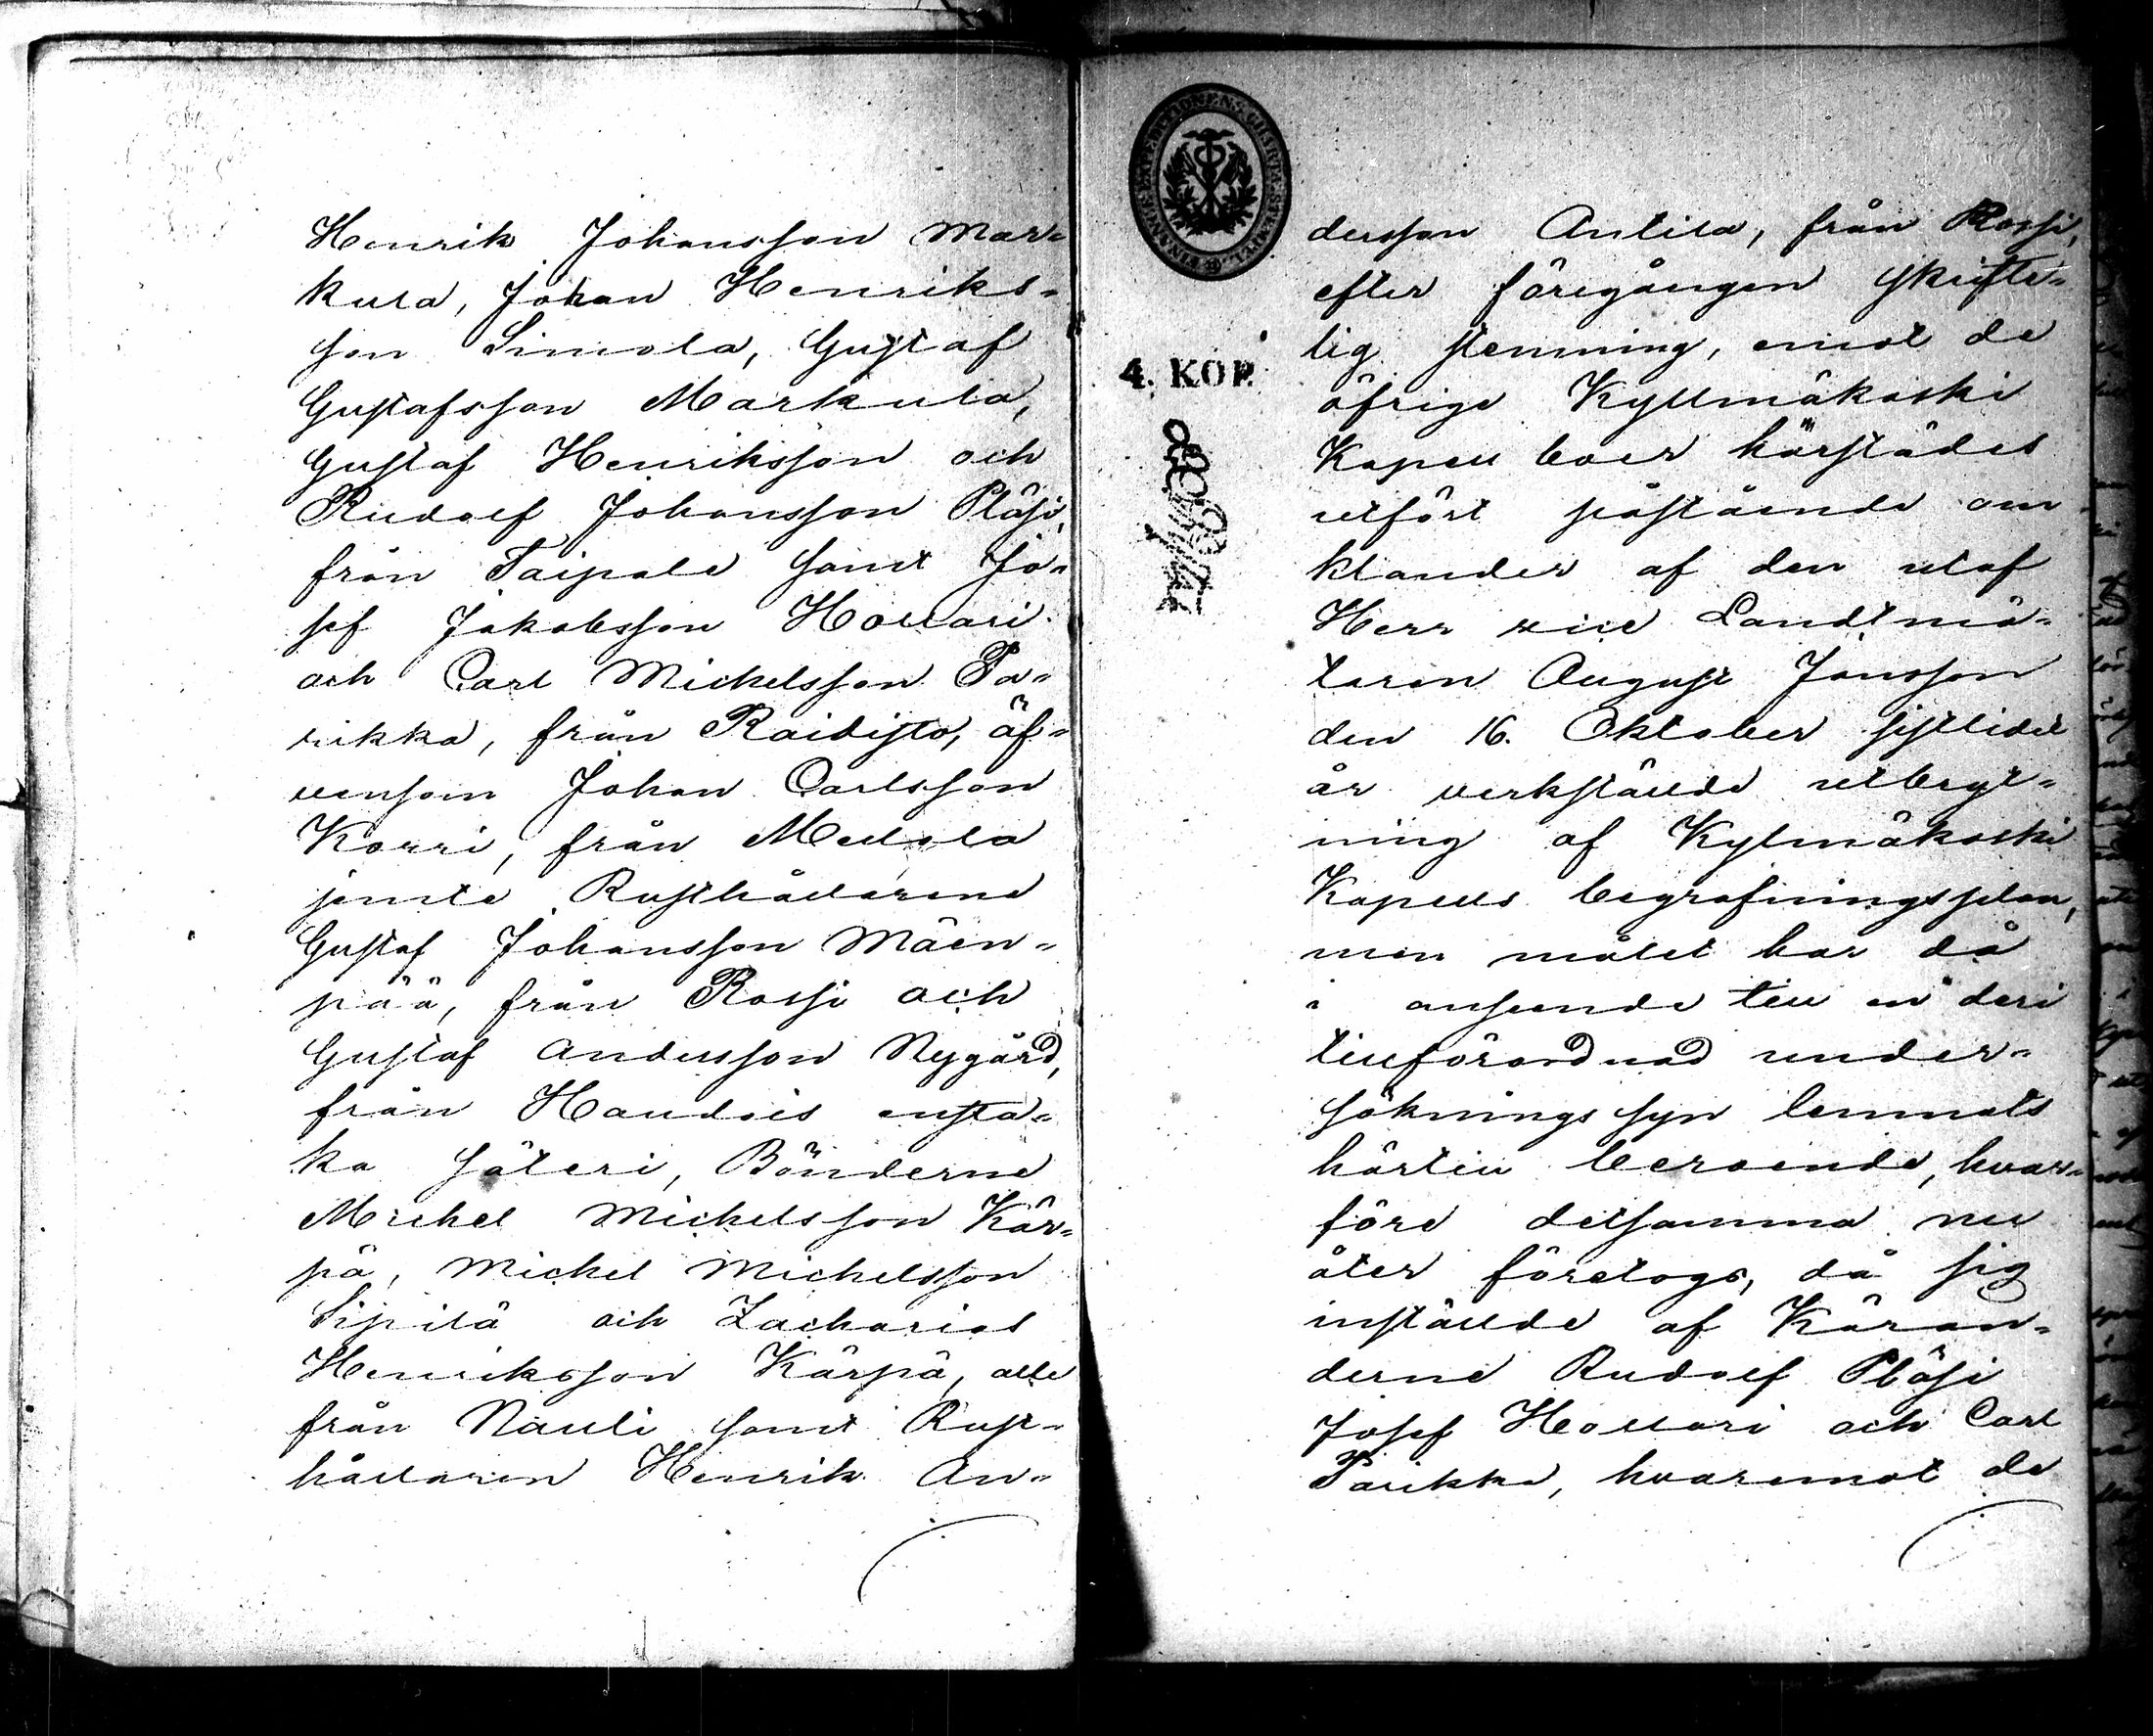 Henrik Johansson Mar-
kula, Johan Henriks-
son Simola, Gustaf
Gustafsson Markula,
Gustaf Henriksson och
Rudolf Johansson Pläsi,
från Taipale samt Jo-
sef Jakobsson Hollari
och Carl Michelsson Pa-
rikka, från Raidisto, äf-
vensom Johan Carlsson
Korri, från Mellola
jemte Rusthållarene
Gustaf Johansson Mäen-
pää, från Rossi och
Gustaf Andersson Nygård,
från Haudois ensta-
ka säteri, Bönderne
Michel Michelsson Kär-
pä, Michel Michelsson
Sipilä och Zacharias
Henriksson Kärpä, alle
från Nauli samt Rust-
hållaren Henrik An-
FINANCE EXPEDITIONENS CHARTÆ STÄMPEL
4. KOP.
dersson Antila, från Rossi,
efter föregången skrifte-
lig stemning, emot de
öfrige Kyllmäkoski
Kapell boer härstädes
utfört påstående om
klander af den utaf
Herr vice Landtmä-
taren August Jansson
den 16. Oktober sistlidet
år verkstälde utbryt-
ning af Kylmäkoski
Kapells begrafningsplan,
men målet har då
i anseende till en deri
tillförordnad under-
söknings syn lemnats
härtill beroende, hvar-
före detsamma nu
åter företogs, då sig
instälde af Käran-
derne Rudolf Pläsi
Josef Hollari och Carl
Parikka, hvaremot de